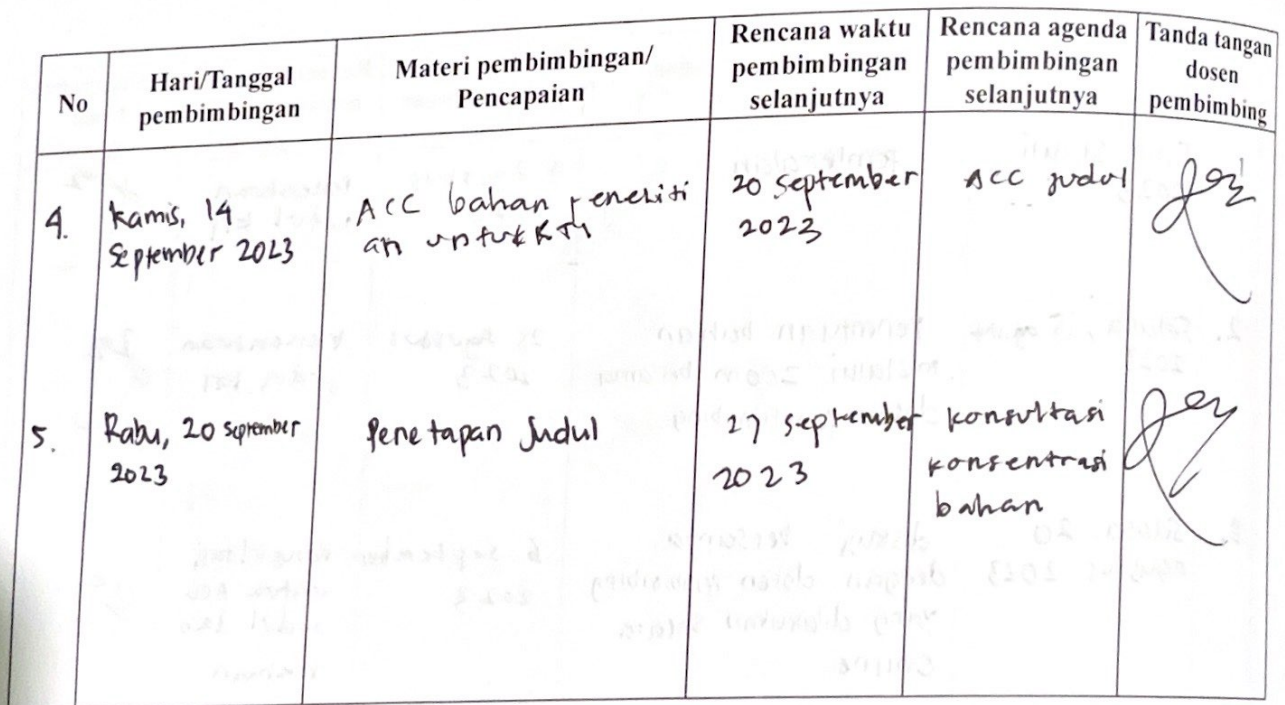 No
Hari/Tanggal
pembimbingan
Materi pembimbingan/
Pencapaian
Rencana waktu
pembimbingan
selanjutnya
Rencana agenda
pembimbingan
selanjutnya
Tanda tangan
dosen
pembimbing
4.
Kamis, 14
September 2023
ACC bahan peneliti
an untuk KTI
20 September
2023
ACC judul
5.
Rabu, 20 september
2023
Penetapan Judul
27 september
2023
konsultasi
konsentrasi
bahan